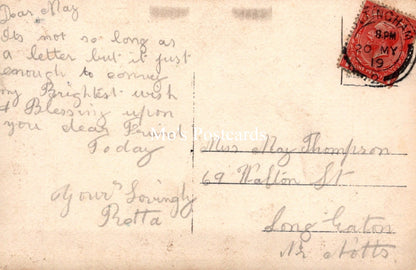 Dear May
Its not so long as
a letter but it just
enough to convey
my Brightest wish
& Blessing upon
you dear Friend
Today
Yours Lovingly
Retta
Miss May Thompson
69 Walton St
Long Eaton
Nr Notts.
TINGHAM
8 PM
20 MY
19
Mo's Postcards